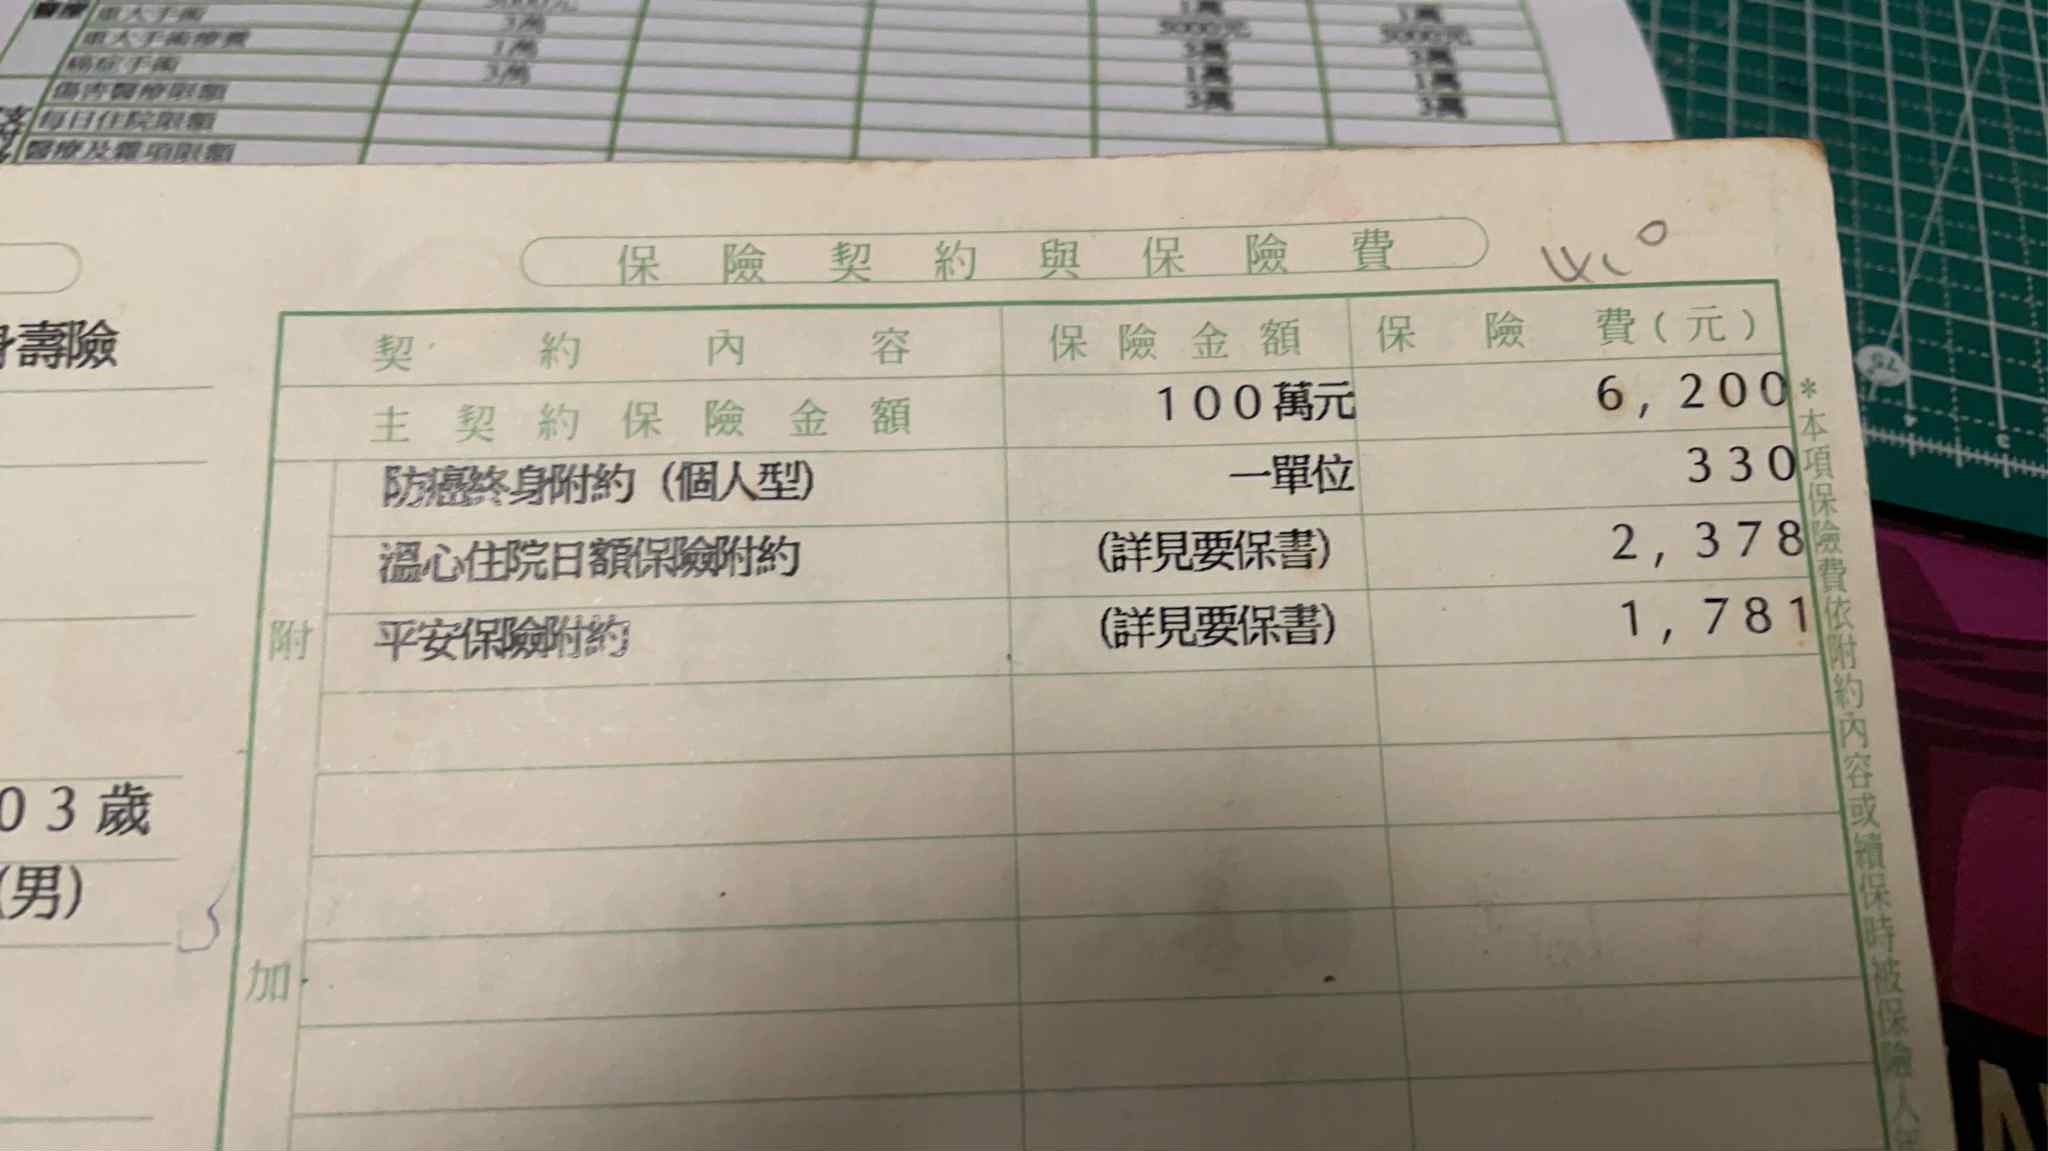 醫療 重大手術 5000元 1萬 1萬
重大手術療費 3萬 5000元 5000元
癌症手術 1萬 3萬 3萬
傷害醫療限額 3萬 1萬 1萬
每日住院限額 3萬 3萬
醫療及雜項限額
保險契約與保險費
身壽險
契約內容 保險金額 保險費(元)
主契約保險金額 100萬元 6,200
防癌終身附約(個人型) 一單位 330
溫心住院日額保險附約 (詳見要保書) 2,378
平安保險附約 (詳見要保書) 1,781
附
加
03歲
(男)
*本項保險費依附約內容或續保時被保險人